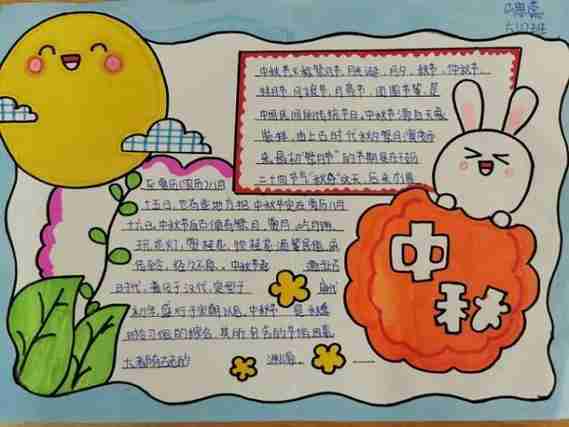 中秋节又称祭月节、月光诞、月夕、秋节、仲秋节、
拜月节、月娘节、月亮节、团圆节等，是
中国民间的传统节日。中秋节源自天象
崇拜，由上古时代秋夕祭月演变而
来。最初“祭月节”的节期是在干支
二十四节气“秋分”这天，后来才调
至夏历（农历）八月
十五日，也有些地方将中秋节定在夏历八月
十六日。中秋节自古便有祭月、赏月、吃月饼、
玩花灯、赏桂花、饮桂花酒等民俗，流
传至今，经久不息。中秋节起源于上古
时代，普及于汉代，定型于唐代
初年，盛行于宋朝以后。中秋节是秋季
时令习俗的综合，其所包含的节俗因素，
大都有古老的渊源。
中秋